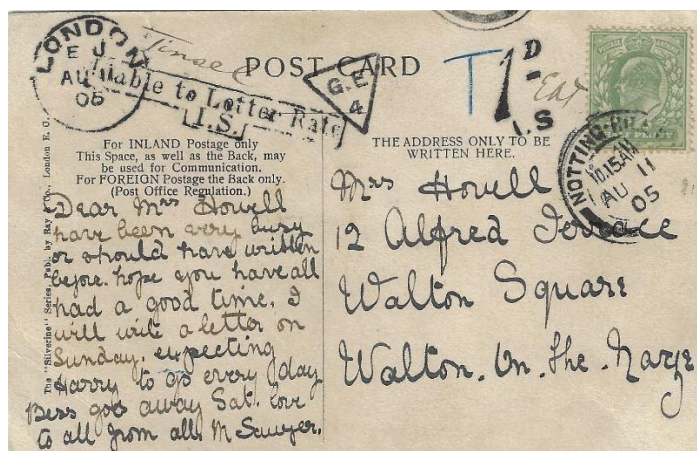 LONDON
E J
AU
05
Tinsel
POST CARD
Liable to Letter Rate
I.S.
G.E
4
T 1D
I.S
NOTTING-HILL
10.15AM
AU 11
05
For INLAND Postage only
This Space, as well as the Back, may
be used for Communication.
For FOREIGN Postage the Back only.
(Post Office Regulation.)
THE ADDRESS ONLY TO BE
WRITTEN HERE.
The "Silverine" Series. Publ. by Ray & Co., London E.C.
Dear Mrs Howell
have been very busy
or should have written
before. hope you have all
had a good time. I
will write a letter on
Sunday. expecting
Harry to go every day
Bess goes away Sat. love
to all from all. M Sawyer.
Mrs Howell
12 Alfred Terrace
Walton Square
Walton. On. the. Naze